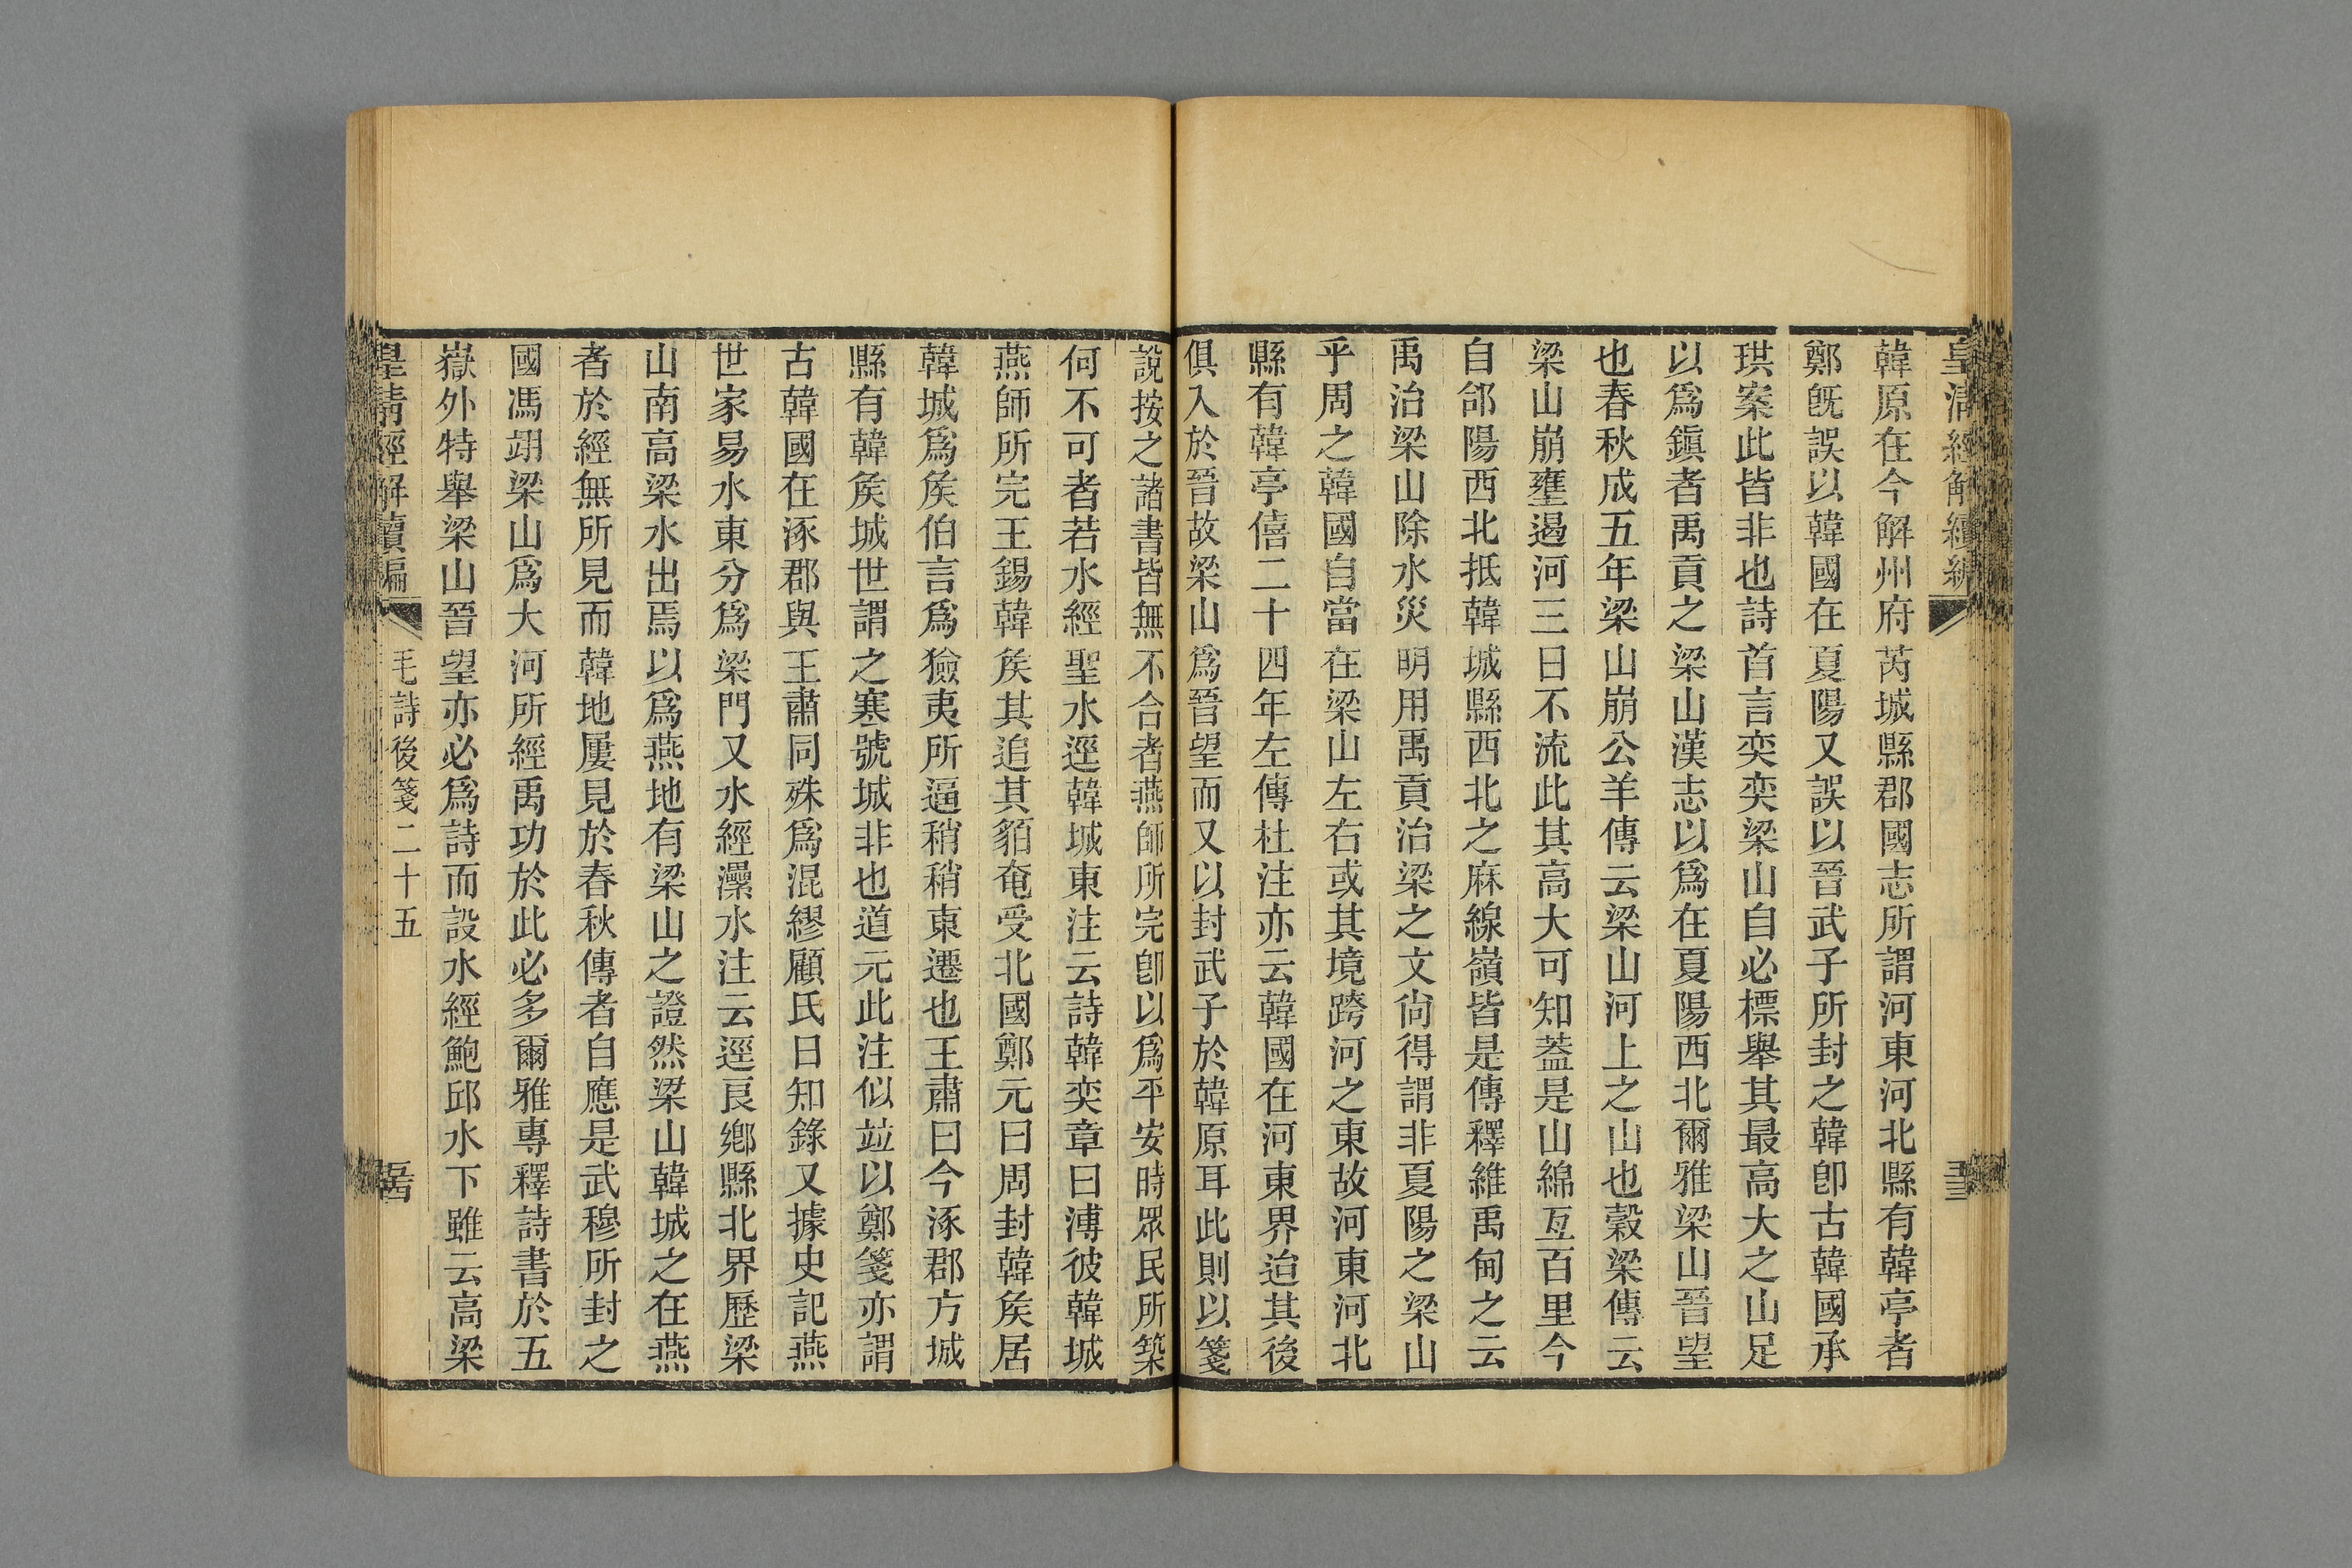 皇清經解續編
韓原在今解州府芮城縣郡國志所謂河東河北縣有韓亭者
鄭旣誤以韓國在夏陽又誤以晉武子所封之韓卽古韓國承
珙案此皆非也詩首言奕奕梁山自必標舉其最高大之山足
以爲鎭者禹貢之梁山漢志以爲在夏陽西北爾雅梁山晉望
也春秋成五年梁山崩公羊傳云梁山河上之山也穀梁傳云
梁山崩壅遏河三日不流此其高大可知蓋是山綿亙百里今
自郃陽西北抵韓城縣西北之麻線嶺皆是傳釋維禹甸之云
禹治梁山除水災明用禹貢治梁之文尙得謂非夏陽之梁山
乎周之韓國自當在梁山左右或其境跨河之東故河東河北
縣有韓亭僖二十四年左傳杜注亦云韓國在河東界迨其後
俱入於晉故梁山爲晉望而又以封武子於韓原耳此則以箋
說按之諸書皆無不合者燕師所完卽以爲平安時眾民所築
何不可者若水經聖水逕韓城東注云詩韓奕章曰溥彼韓城
燕師所完王錫韓矦其追其貊奄受北國鄭元曰周封韓矦居
韓城爲矦伯言爲獫夷所逼稍稍東遷也王肅曰今涿郡方城
縣有韓矦城世謂之寒號城非也道元此注似竝以鄭箋亦謂
古韓國在涿郡與王肅同殊爲混繆顧氏日知錄又據史記燕
世家易水東分爲梁門又水經灅水注云逕良鄉縣北界歷梁
山南高梁水出焉以爲燕地有梁山之證然梁山韓城之在燕
者於經無所見而韓地屢見於春秋傳者自應是武穆所封之
國馮翊梁山爲大河所經禹功於此必多爾雅專釋詩書於五
嶽外特舉梁山晉望亦必爲詩而設水經鮑邱水下雖云高梁
皇淸經解續編
毛詩後箋二十五